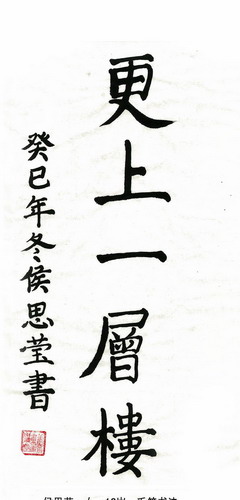 更上一層樓
癸巳年冬侯思莹書